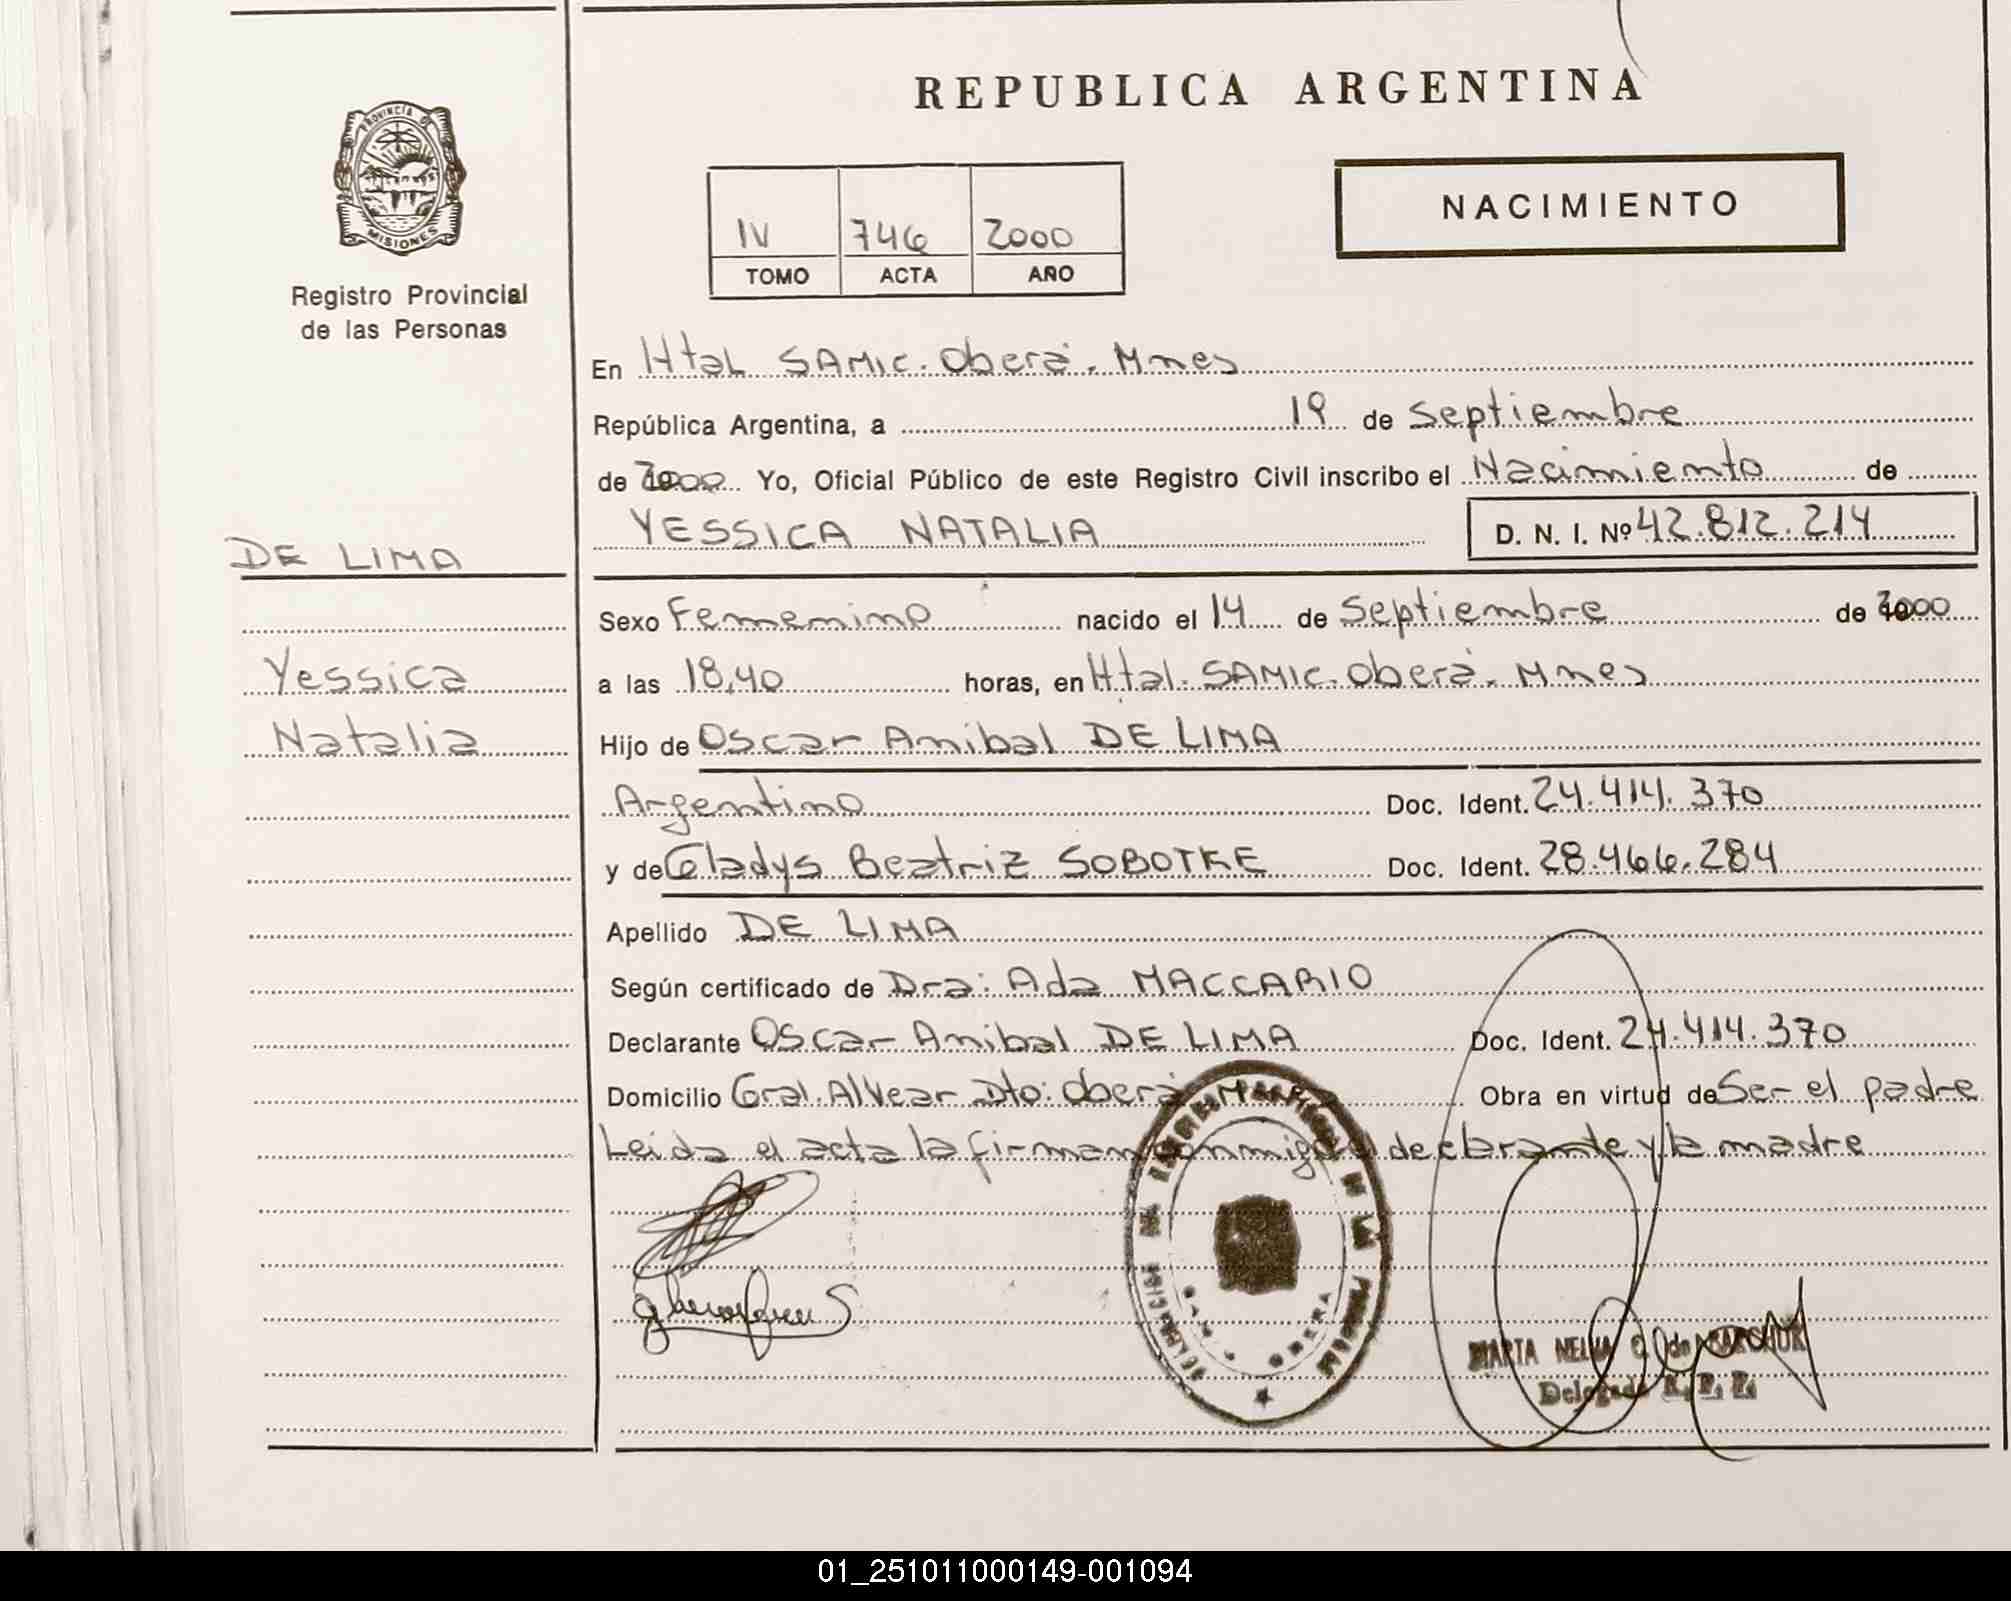 REPUBLICA ARGENTINA
PROVINCIA DE
MISIONES
Registro Provincial
de las Personas
IV 746 2000
TOMO ACTA AÑO
NACIMIENTO
En Htal SAMIC. Oberá. Mnes
República Argentina, a 19 de Septiembre
de 2000 Yo, Oficial Público de este Registro Civil inscribo el Nacimiento de
YESSICA NATALIA D. N. I. Nº 42.812.214
DE LIMA
Yessica
Natalia
Sexo Femenino nacido el 14 de Septiembre de 2000
a las 18,40 horas, en Htal. SAMIC. Oberá. Mnes
Hijo de Oscar Anibal DE LIMA
Argentino Doc. Ident. 24.414.370
y de Gladys Beatriz SOBOTKE Doc. Ident. 28.466.284
Apellido DE LIMA
Según certificado de Dra: Ada MACCARIO
Declarante Oscar Anibal DE LIMA Doc. Ident. 24.414.370
Domicilio Gral. Alvear Dto: Oberá Obra en virtud de Ser el padre
Leida el acta la firman conmigo el declarante y la madre
OBERA
MARTA NELIDA
Delegada R. P. P.
01_251011000149-001094